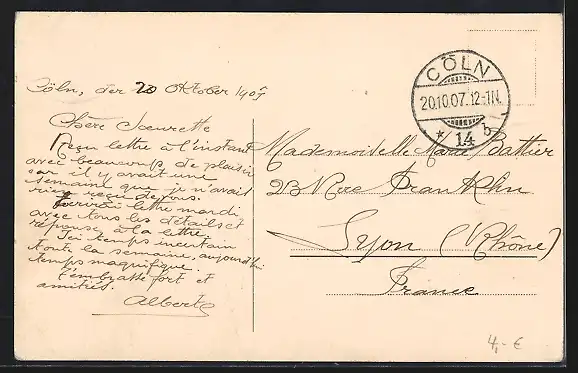 Cöln, der 20 Oktober 1907
Chère Soeurette
Reçu lettre à l'instant
avec beaucoup de plaisir
car il y avait une
semaine que je n'avais
rien reçu de vous.
lettre mardi
avec tous les détails et
réponse à la lettre.
Ici temps incertain
toute la semaine, aujourd'hui
temps magnifique.
T'embrasse fort et
amitiés.
Albert
CÖLN
20.10.07.12-1N.
* 14 b
Mademoiselle Marie Battier
23 Rue Franklin
Lyon (Rhône)
France
4,- €